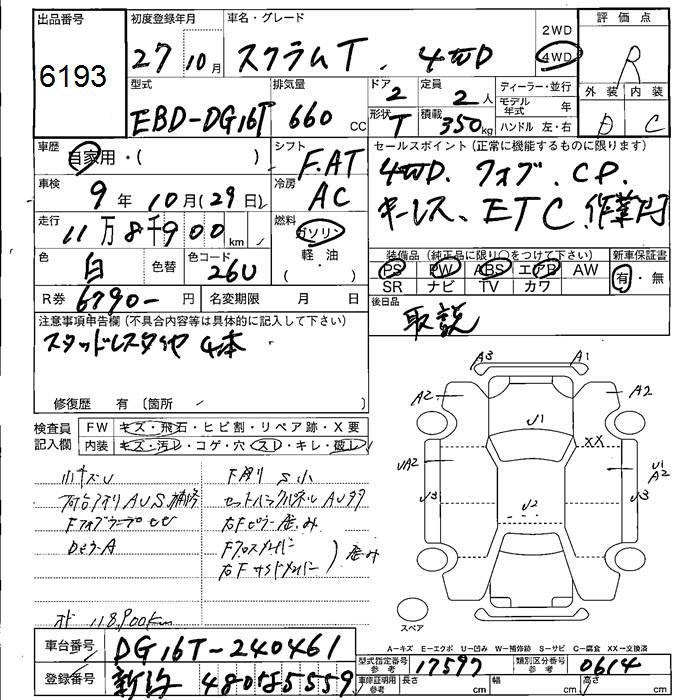 出品番号 初度登録年月 車名・グレード 2WD 評価点
6193 27 10月 スクラムT. 4WD 4WD R
型式 排気量 ドア 定員 ディーラー・並行 外装 内装
EBD-DG16T 660cc 2 2人 モデル年式 年 D C
形状 積載 ハンドル 左・右
T 350kg
車歴 自家用・( ) シフト F.AT セールスポイント(正常に機能するものに限ります)
車検 9年 10月(29日) 冷房 AC 4WD. フォグ. CD.
走行 11万8千900km 燃料 ガソリン キーレス、ETC.作業灯
軽・油
色 白 色替 色コード 26U 装備品(純正品に限り○をつけて下さい) 新車保証書
PS PW ABS エアB AW 有・無
SR ナビ TV カワ
R券 6790-円 名変期限 月 日 後日品
取説
注意事項申告欄(不具合内容等は具体的に記入して下さい)
スタッドレスタイヤ 4本
修復歴 有(箇所 )
検査員記入欄 FW キズ・飛石・ヒビ割・リペア跡・X要
内装 キズ・汚レ・コゲ・穴・スレ・キレ・破レ
小キズU 下廻り S小
荷台アオリAUS補修 セットバックパネルAUタタ
右Fピラー歪み
DピラーA Fクロスメンバー
右Fサイドメンバー 歪み
118,900km
A3 A1
A2 A2
U1 XX
UA2 U1 A2
U3 U2 U3
スペア
A-キズ E-エクボ U-凹み W-補修跡 S-サビ C-腐食 XX-交換済
車台番号 DG16T-240461 型式指定番号 参考 17597 類別区分番号 参考 0614
登録番号 新潟 480 5559 車庫証明用 参考 長さ cm 幅 cm 高さ cm